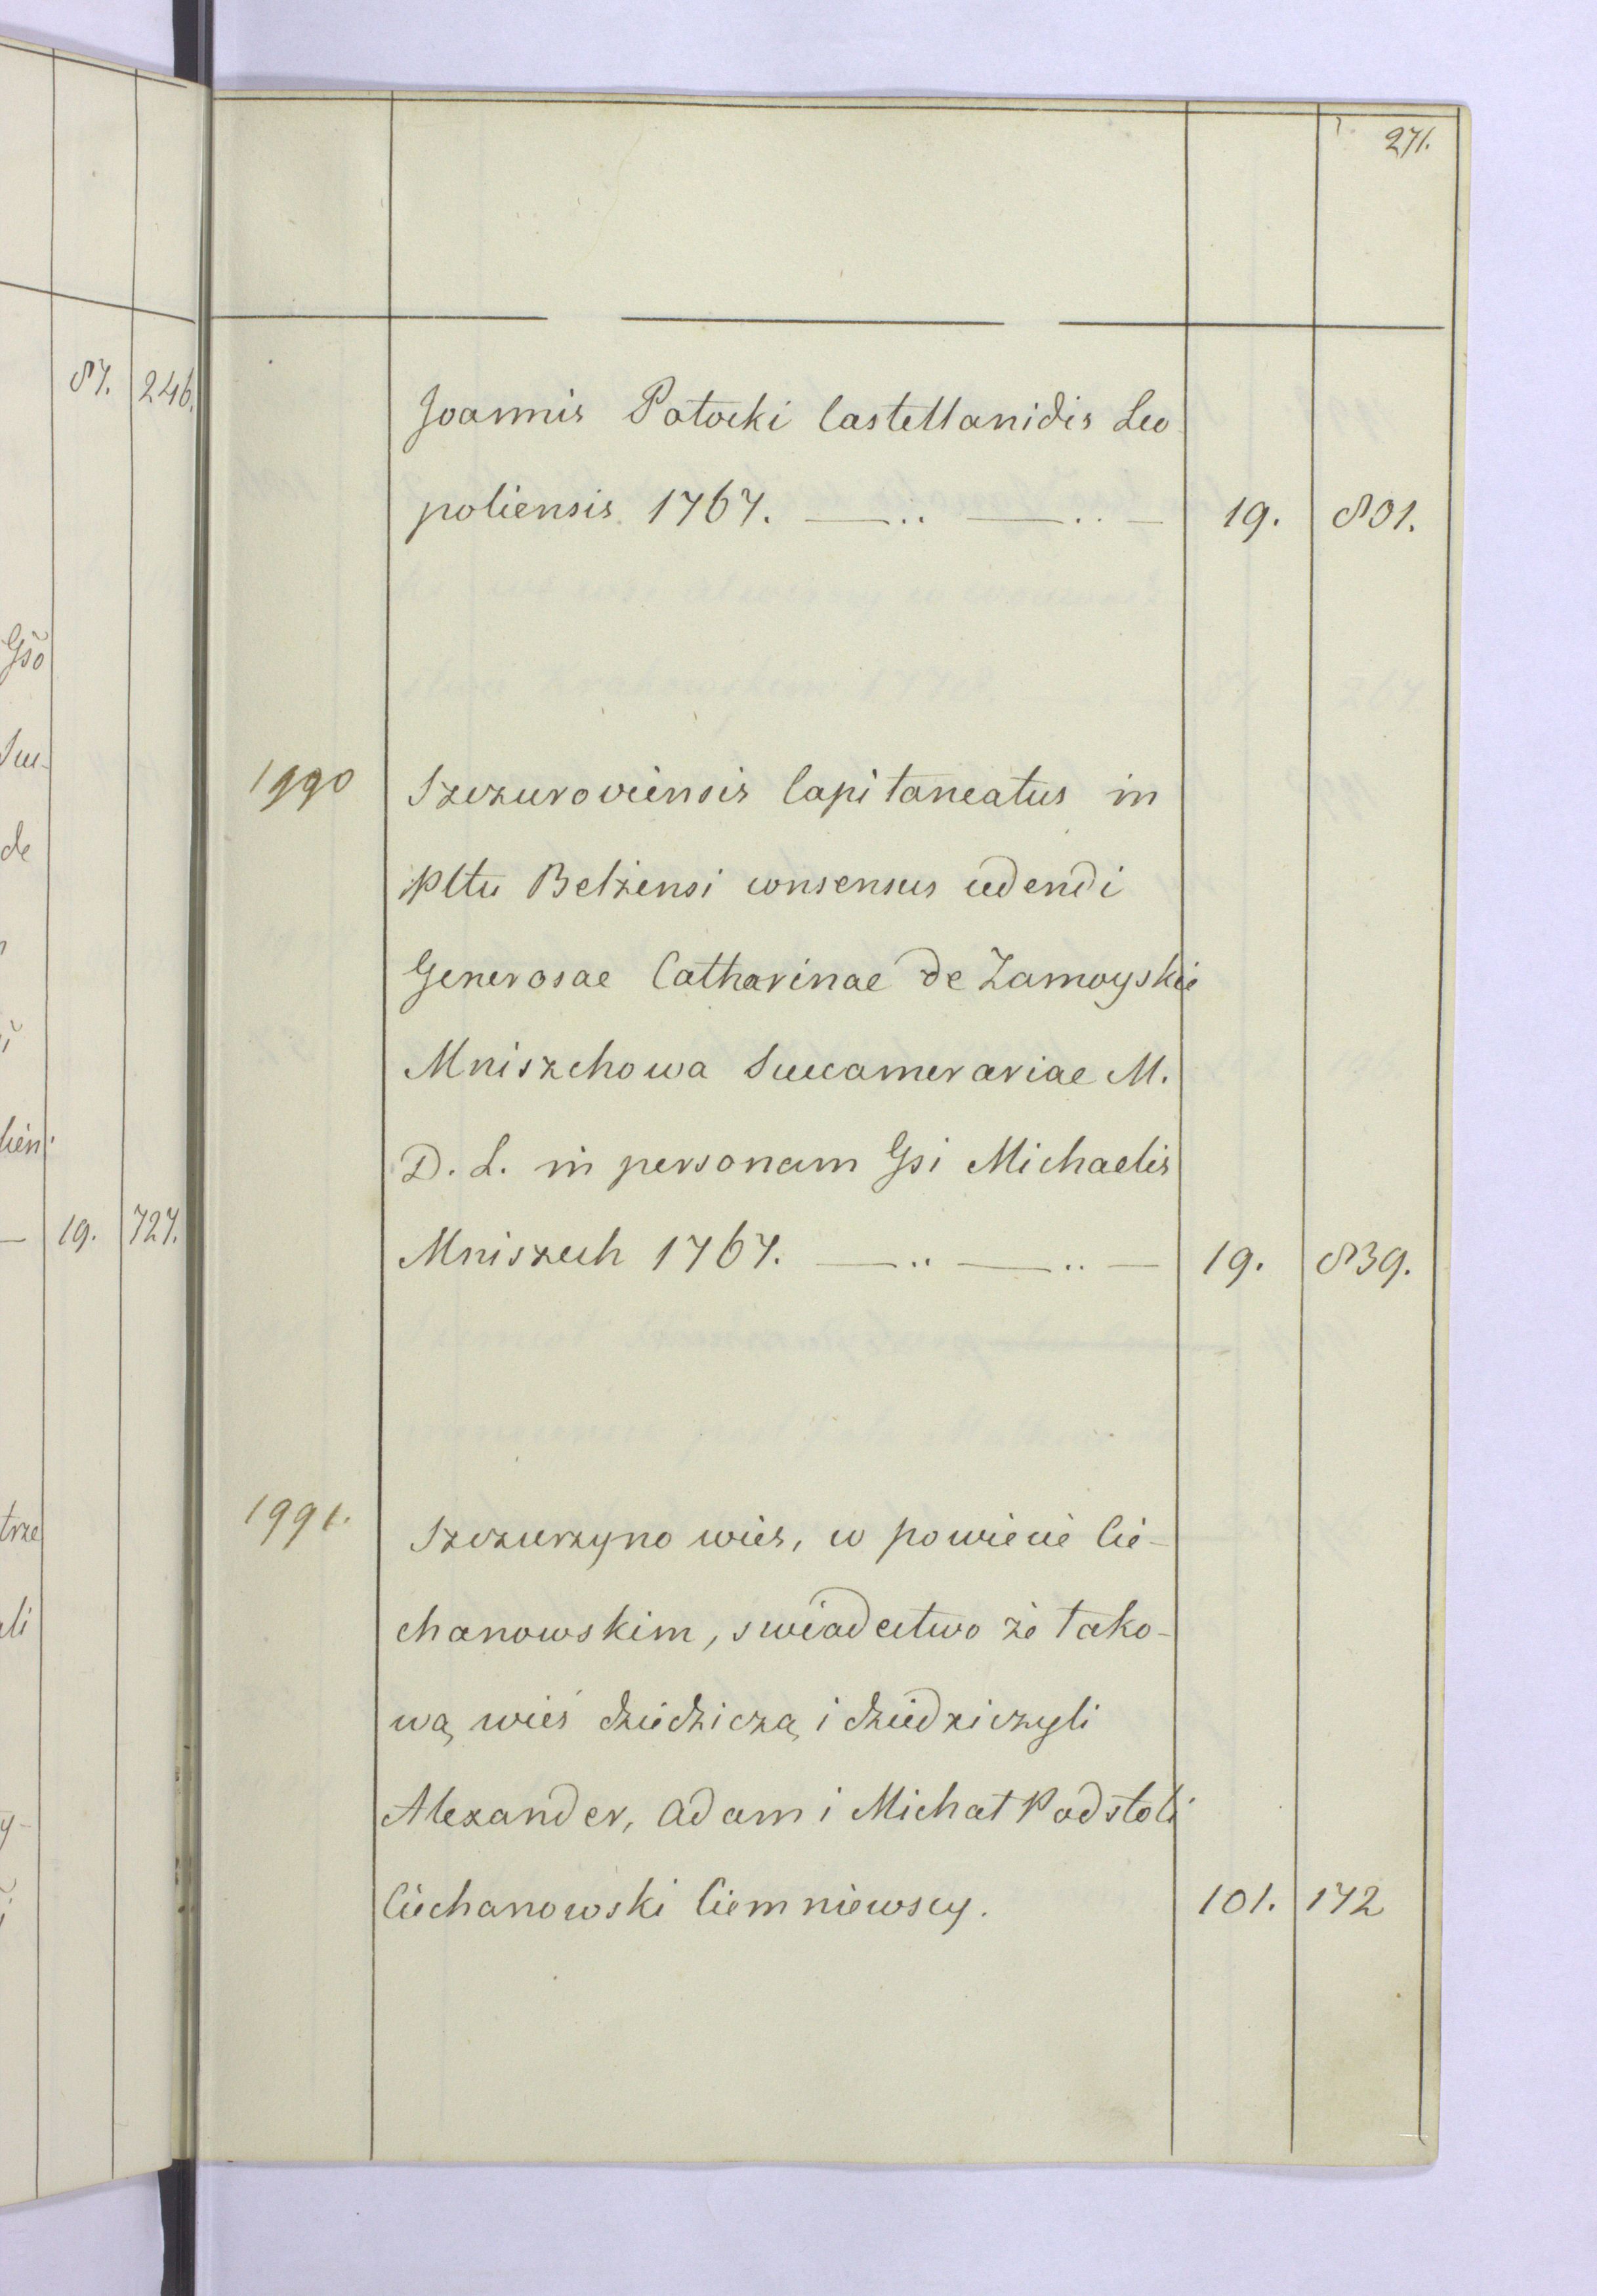 271.
87. 246.
Joannis Potocki Castellanidis Leo
poliensis 1767. —..—..— 19. 801.
Gso
Suc-
1990 Szczuroviensis Capitaneatus in
de
Pltu Belzensi consensus cedendi
Generosae Catharinae de Zamoyskie
Mniszchowa Succamerariae M.
D. L. in personam Gsi Michaelis
— 19. 727.
Mniszech 1767. —..—..— 19. 839.
1991. Szczurzyno wies, w powiecie Cie-
trze
chanowskim, swiadectwo że tako-
wą wieś dziedziczą i dziedziczyli
Alexander, Adam i Michał Podstoli
Ciechanowski Ciemniewscy. 101. 172